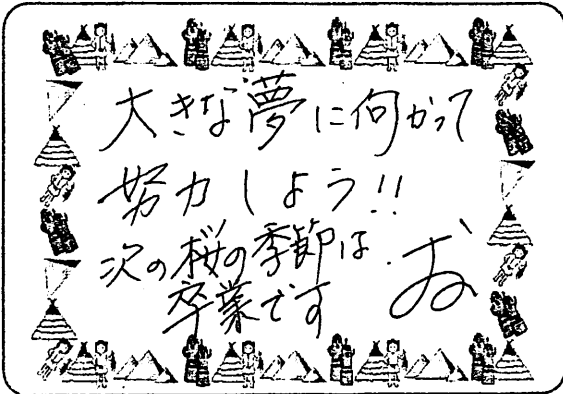 大きな夢に向かって
努力しよう!!
次の桜の季節は
卒業です
お